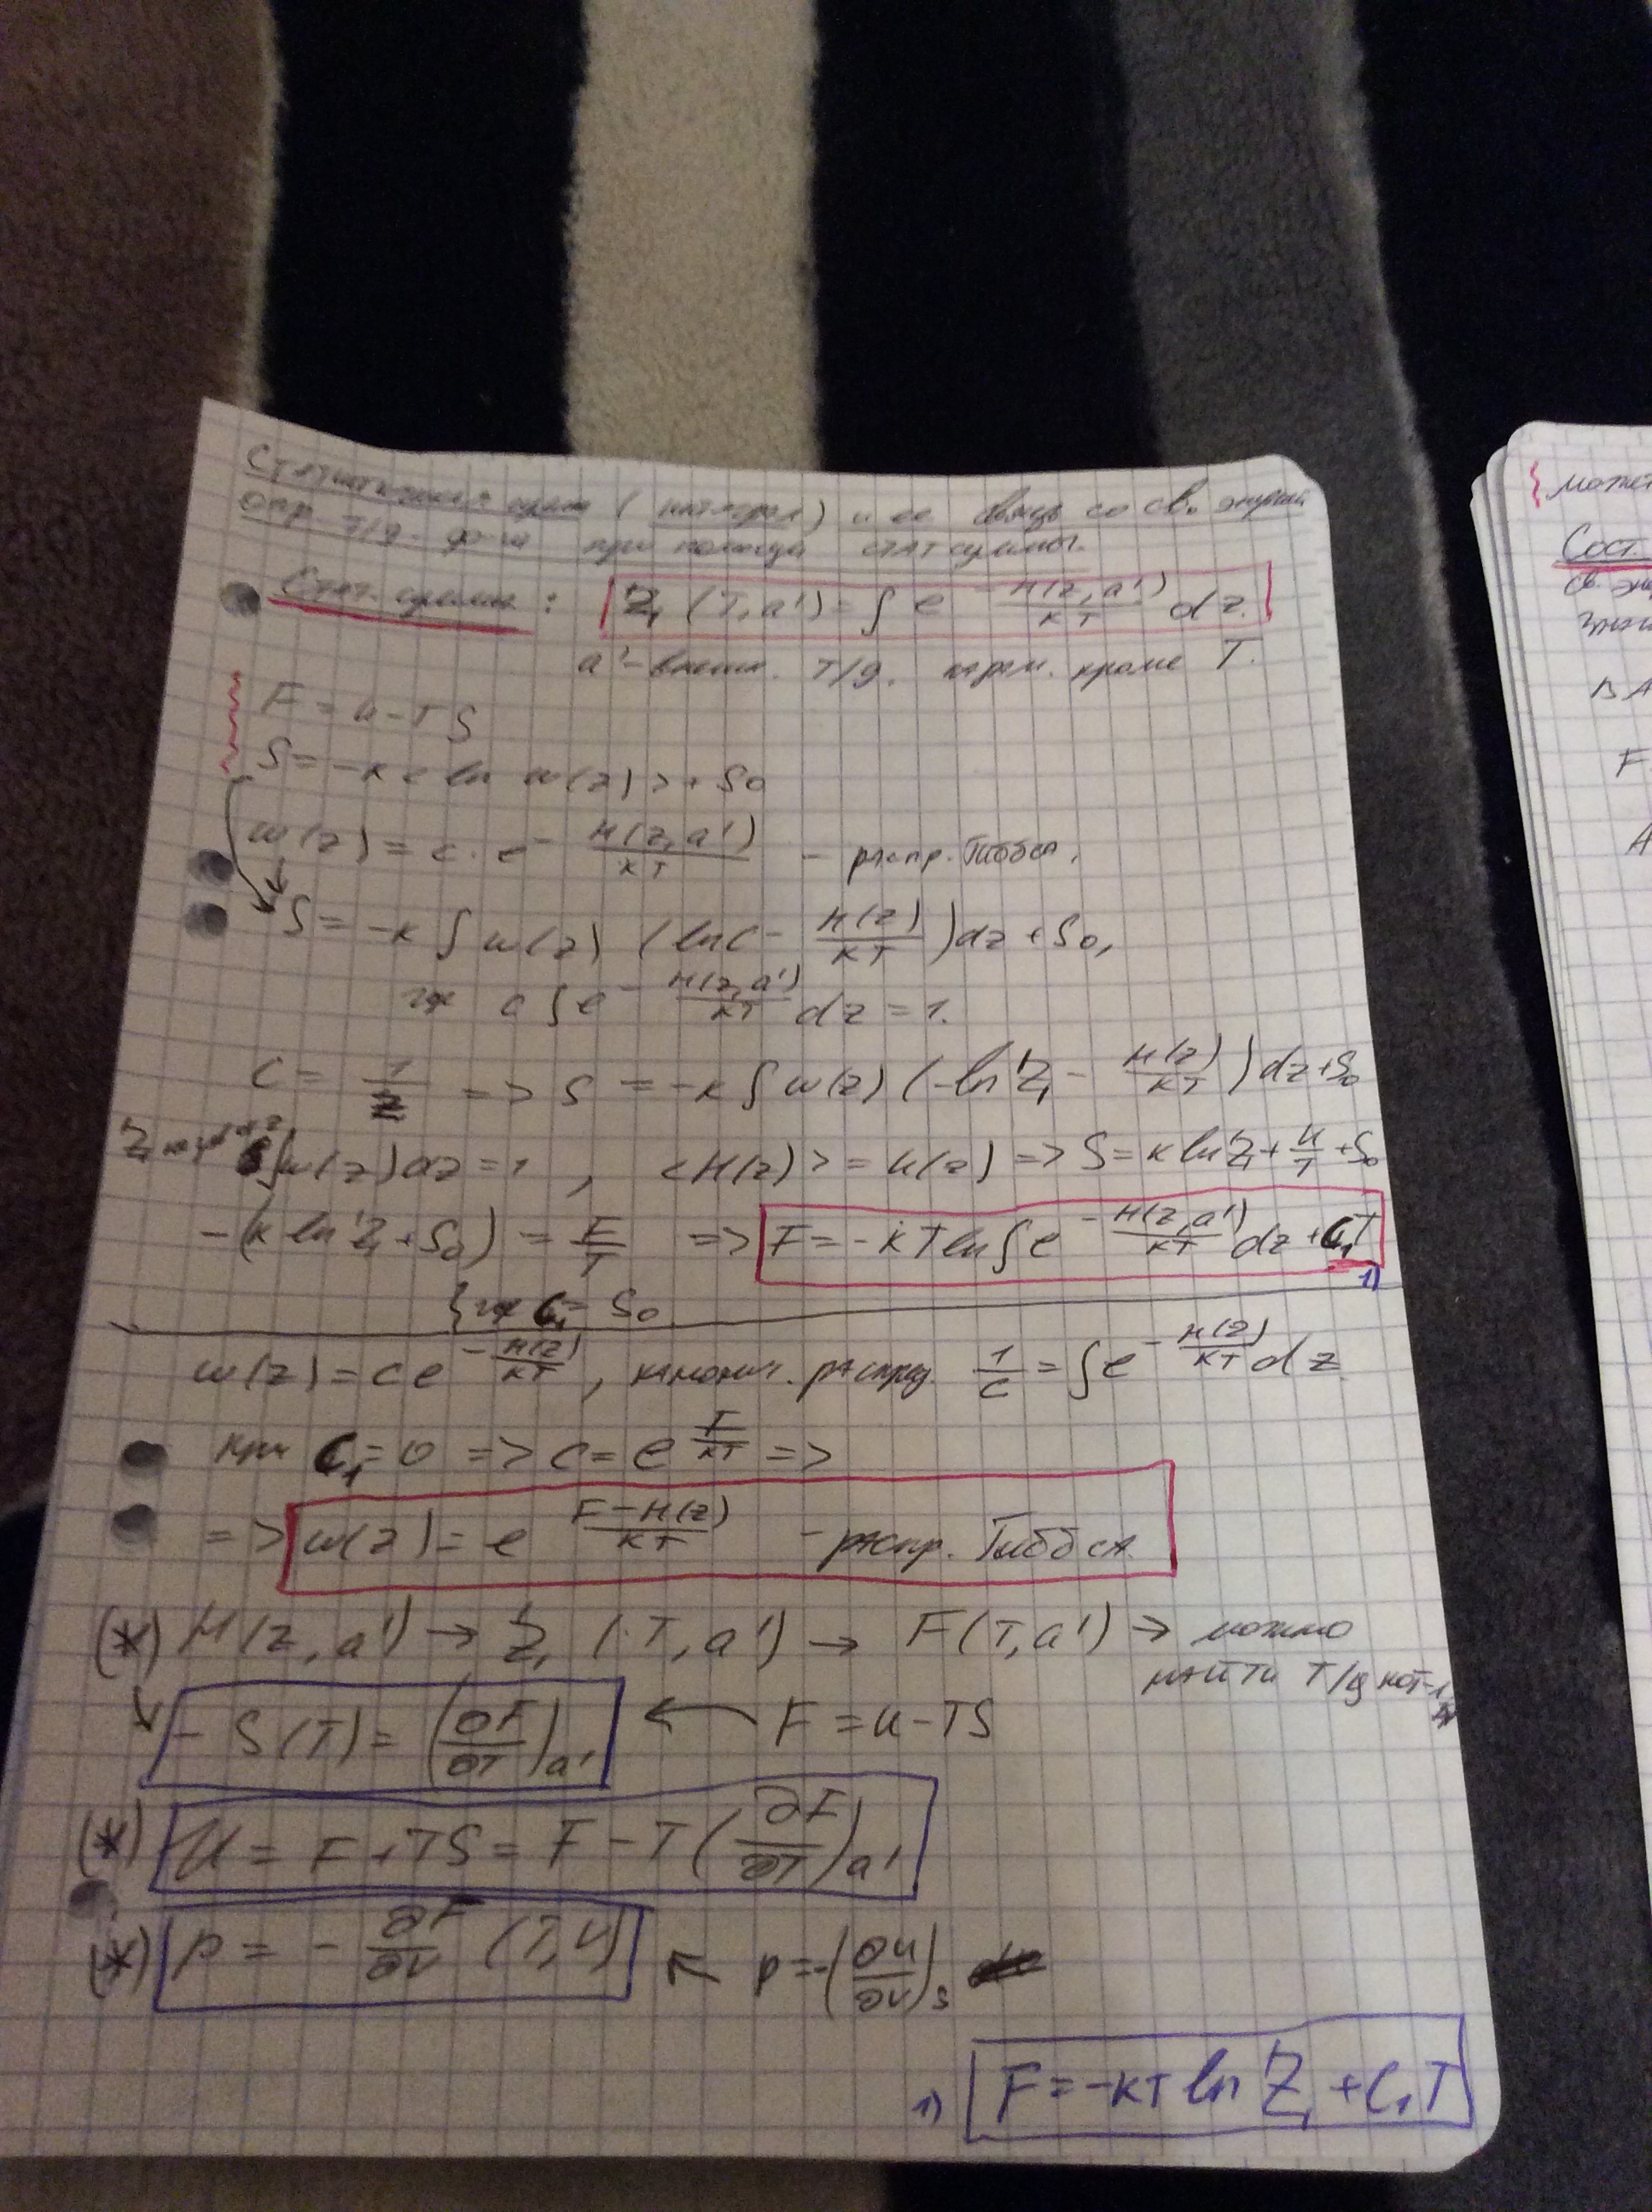 Статистическая сумма (интеграл) и ее связь со св. энергией
опр. т/д. ф-ии при помощи статсуммы.
Стат. сумма: Z (T, a') = ∫ e^(-H(z, a')/кT) dz.
a' - внешн. т/д. парам. кроме T.
F = u - TS
S = -к < ln w(z) > + S₀
w(z) = c · e^(-H(z, a')/кT) - распр. Гиббса.
S = -к ∫ w(z) (ln c - H(z)/кT) dz + S₀,
где c ∫ e^(-H(z, a')/кT) dz = 1.
c = 1/Z => S = -к ∫ w(z) (-ln Z - H(z)/кT) dz + S₀
∫ w(z) dz = 1, <H(z)> = u(z) => S = к ln Z + u/T + S₀
-(к ln Z + S₀) = F/T => F = -кT ln ∫ e^(-H(z, a')/кT) dz + C₁T
1)
{ где C₁ = S₀
w(z) = c e^(-H(z)/кT), канонич. распред. 1/c = ∫ e^(-H(z)/кT) dz
при C₁ = 0 => c = e^(F/кT) =>
=> w(z) = e^((F - H(z))/кT) - распр. Гиббса.
(*) H(z, a') → Z (T, a') → F(T, a') → можно
найти т/д пот-
- S(T) = (∂F/∂T)a' ← F = u - TS
(*) U = F + TS = F - T (∂F/∂T)a'
(*) p = - ∂F/∂V (T, V) ← p = -(∂u/∂V)s
1) F = -кT ln Z + C₁T
{ может
Сост.
св. эн
F